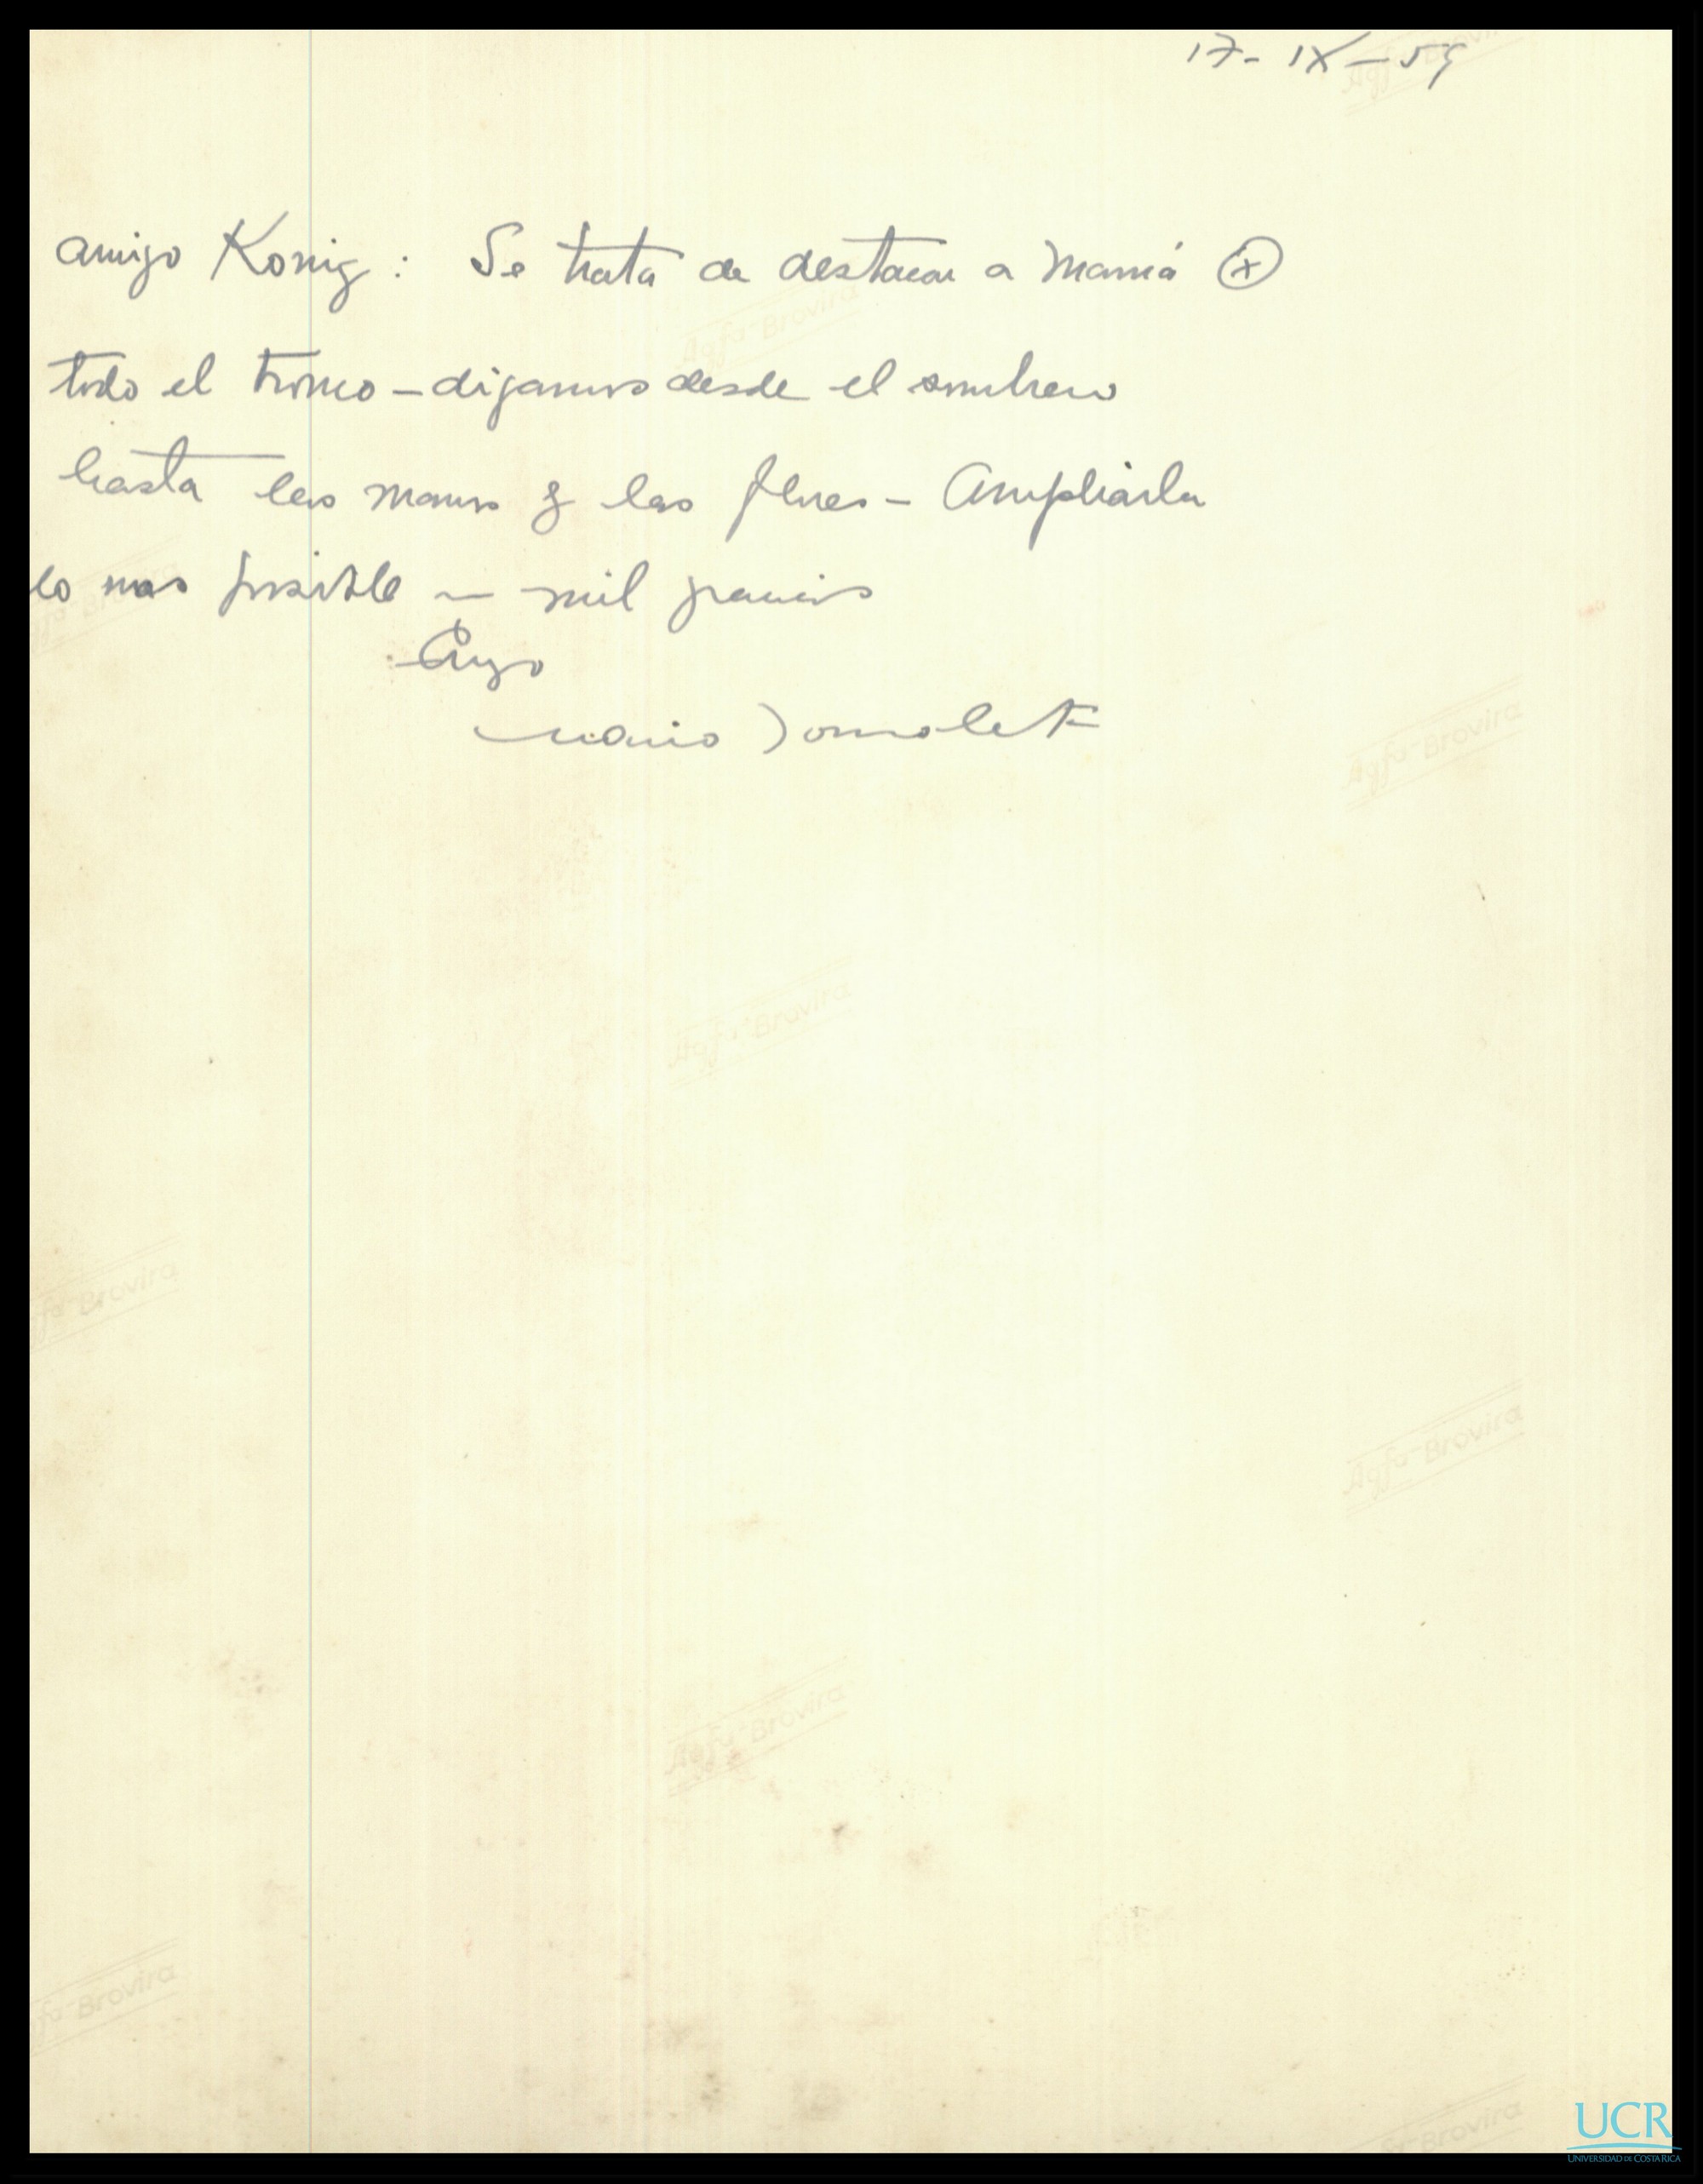 17-IX-59
amigo Konig: Se trata de destacar a Mamá
todo el tronco - digamos desde el sombrero
hasta las manos y las flores - Ampliarla
lo mas posible - mil gracias
Mario
Agfa-Brovira
Agfa-Brovira
Agfa-Brovira
Agfa-Brovira
Brovira
Agfa-Brovira
Agfa-Brovira
Brovira
Brovira
UCR
UNIVERSIDAD DE COSTA RICA